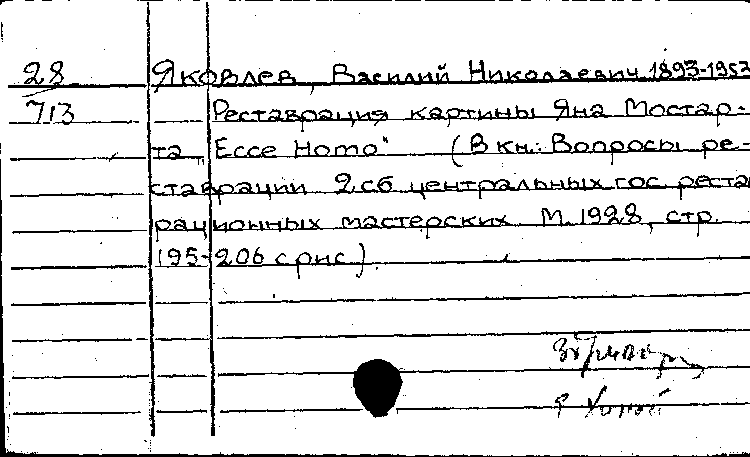 28 Яковлев, Василий Николаевич 1893-1953
713 Реставрация картины Яна Мостар-
та „Ecce Homo" (В кн.: Вопросы ре-
ставрации 2 сб центральных гос реста
рационных мастерских М. 1928, стр.
195-206 с рис).